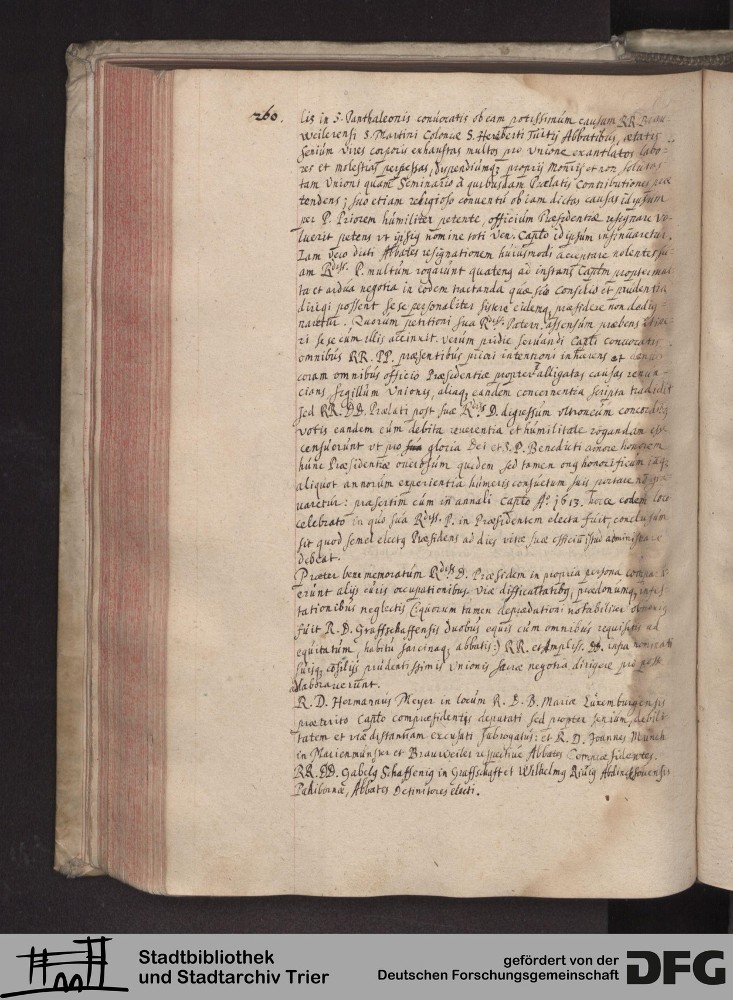 260.
lis in S. Panthaleonis convocatis ob eam potissimùm causam RR. Brau-
weilerensi S. Martini Coloniæ S. Heriberti Tuitij Abbatibus, ætatis
senium vires corporis exhaustas multos pro Unione exantlatos labo-
res et molestias perpessas, dispendiumq; proprij Monrij et non solutas
tam Unioni quam Seminario à quibusdam Prælatis Contributiones præ
tendens; suo etiam religioso conventu ob eam dictas causas id ipsum
per P. Priorem humiliter petente, officium Præsidentiæ resignare vo-
luerit petens ut ipsius nomine toti Ven. Capto id ipsum insinuaretur.
Iam vero dicti Abbates resignationem huiusmodi acceptare nolentes su-
am Rdiss. P. multùm rogarunt quatenus ad instans Captm propter mul
ta et ardua negotia in eodem tractanda quæ suo Consilio et prudentia
dirigi possent sese personaliter sistere eidemq; præsidere non dedig-
naretur. Quorum petitioni sua Rdiss. Patern. assensum præbens
sese cum illis accinxit. verum pridie servandi Capti convocatis
omnibus RR. PP. præsentibus priori intentioni inhærens et
coram omnibus officio Præsidentiæ propter alligatas causas renun-
cians sigillum Unionis, aliaq; eandem concernentia scripta tradidit
sed RR. DD. Prælati post suæ Rdiss. D. digressum ultroneum concordibus
votis eandem cum debita reverentia et humilitate rogandam esse
censuerunt ut pro gloria Dei et S. P. Benedicti amore honorem
hunc Præsidentiæ onerosum quidem sed tamen onus honorificum
aliquot annorum experientia humeris consuetum suis portare
varetur: præsertim cum in annali Capto Ao. 1613. hocce eodem loco
celebrato in quo sua Rdiss. P. in Præsidentem electa fuit, conclusum
sit quod semel electus Præsidens ad dies vitæ suæ officium administrare
debeat.
Præter bene memoratum Rdiss. D. Præsidem in propria persona compa-
erunt alijs curis occupationibus, viæ difficultatibus, prædonumq; infes
tationibus neglectis (: quorum tamen deprædationi notabiliter
fuit R. D. Graffschaffensis duobus equis cum omnibus requisitis ad
equitatum, habitu sarcinaq; abbatis:) RR. et Ampliss. DD. infra nominati
suisq; cosilijs prudentissimis Unionis sacræ negotia dirigere pro posse
adlabrarunt.
R. D. Hermannus Meyer in locum R. D. B. Mariæ Luxemburgensis
præterito Capto compræsidentis deputati sed propter senium, debili
tatem et viæ distantiam excusati subrogatus: et R. D. Joannes Münch
in Marienmünster et Brauweiler respective Abbates Compræsidentes.
RR. DD. Gabelus Schaffenig in Graffschafft et Wilhelmus Abdinckhovensis
Abbates Definitores electi.
Stadtbibliothek
und Stadtarchiv Trier
gefördert von der
Deutschen Forschungsgemeinschaft
DFG